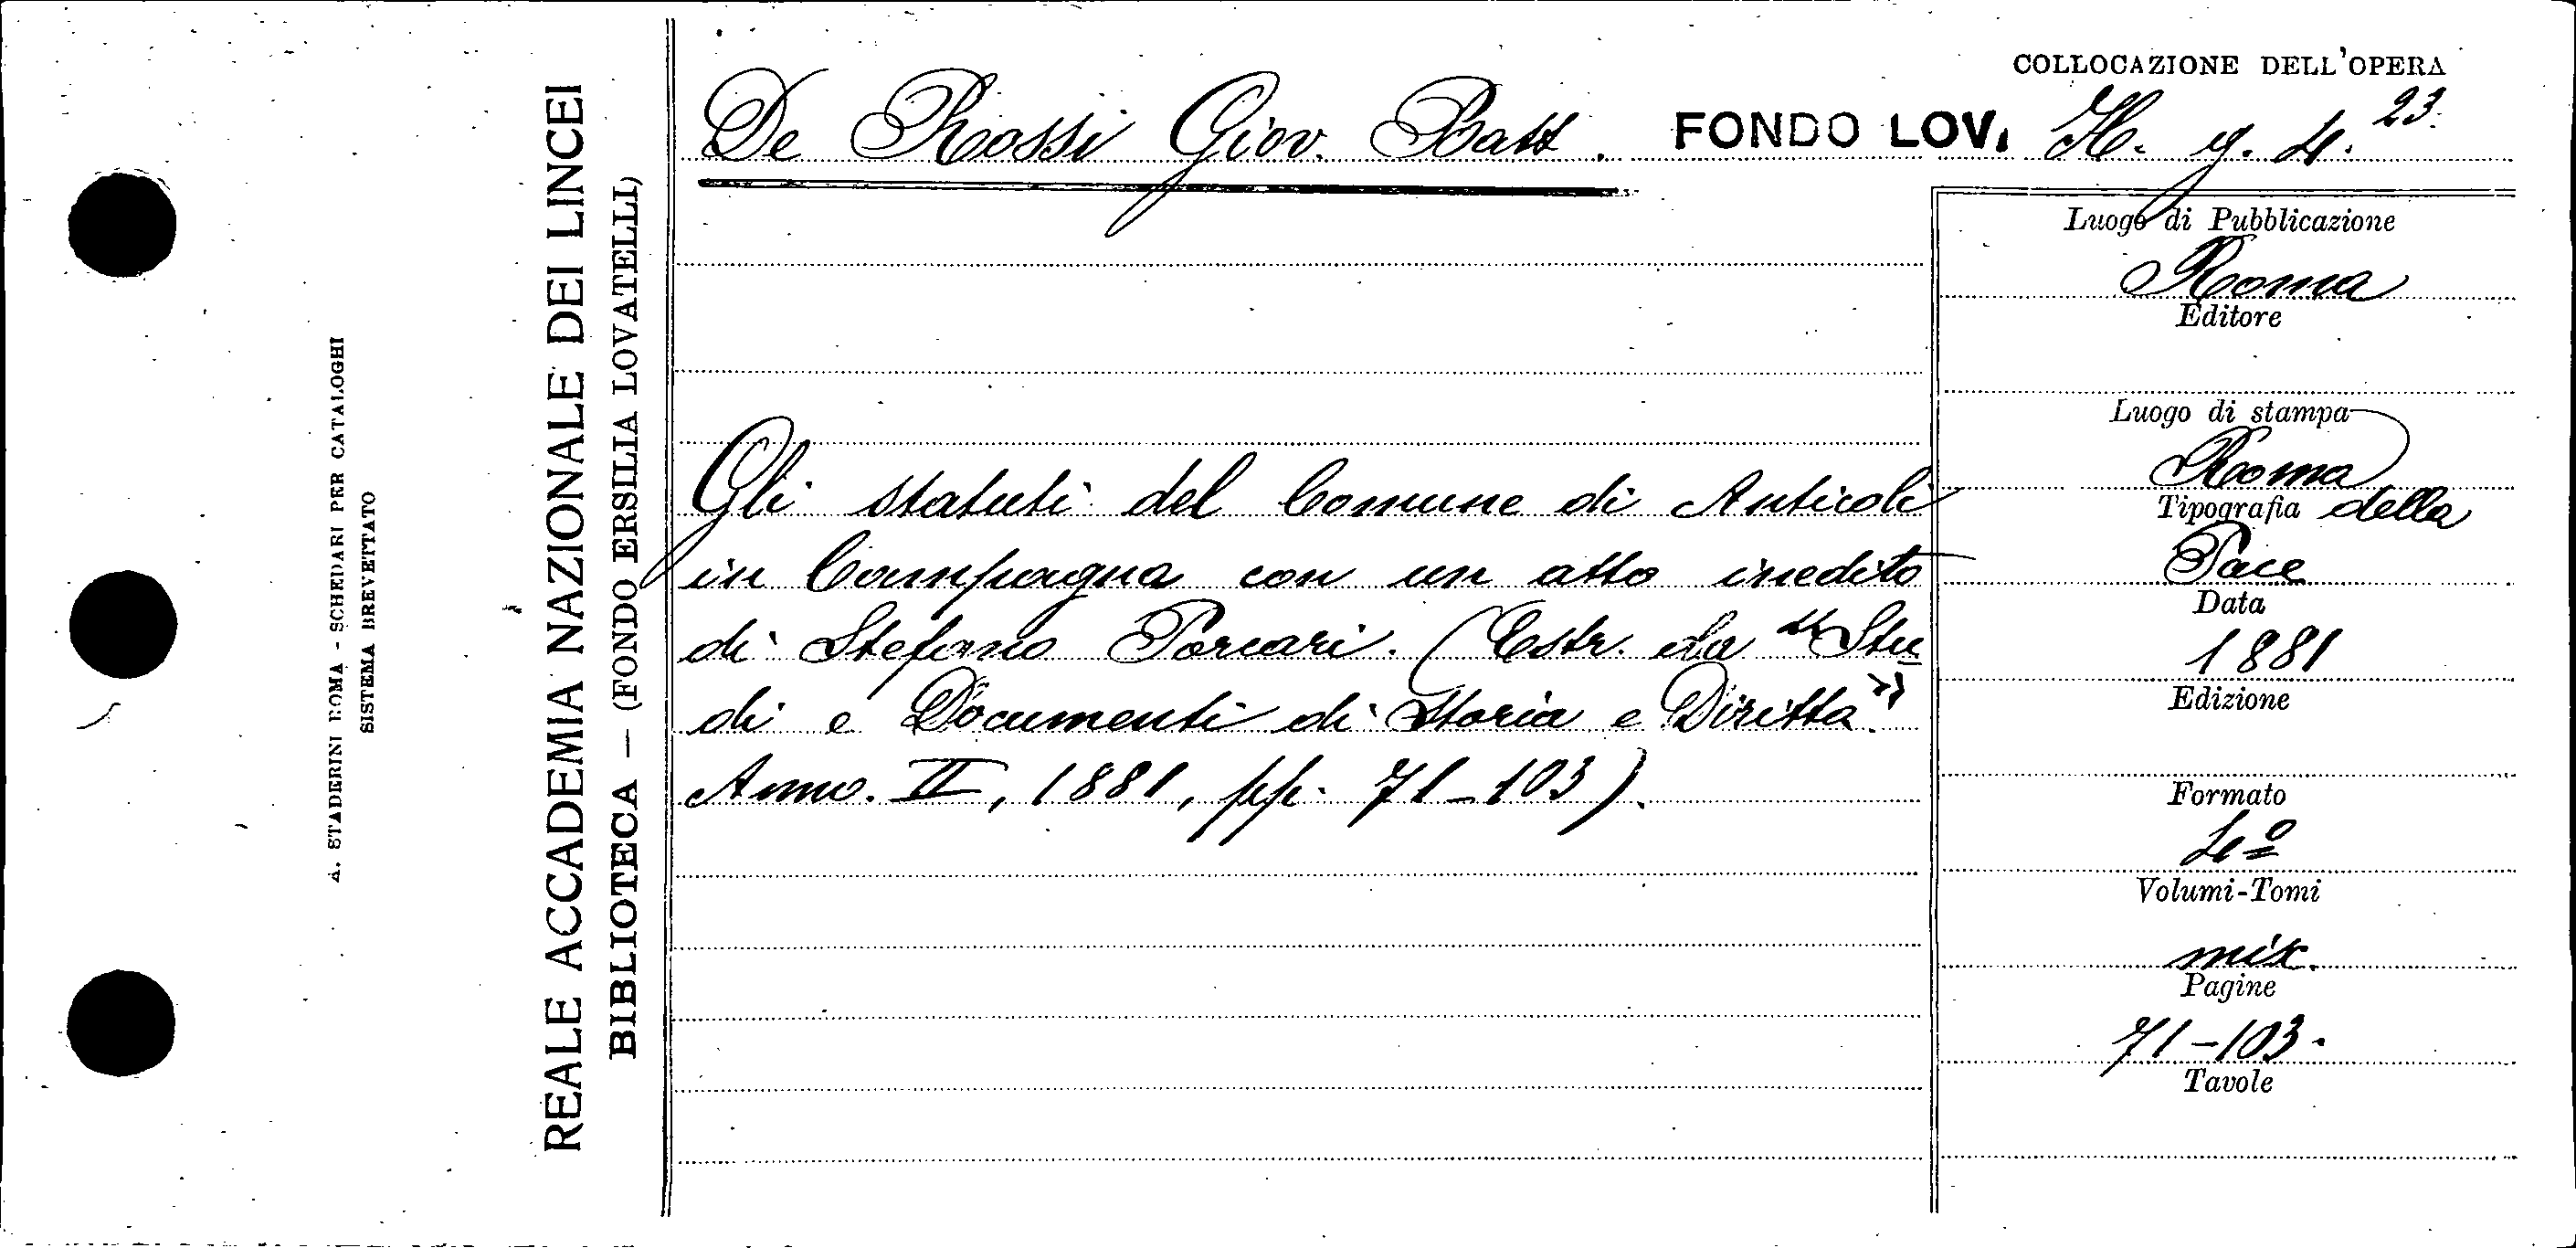 A. STADERINI ROMA - SCHEDARI PER CATALOGHI
SISTEMA BREVETTATO
REALE ACCADEMIA NAZIONALE DEI LINCEI
BIBLIOTECA — (FONDO ERSILIA LOVATELLI)
De Rossi Giov. Batt.
COLLOCAZIONE DELL'OPERA
FONDO LOV. H. g. 4. 23.
Gli statuti del Comune di Anticoli
in Campagna con un atto inedito
di Stefano Porcari. (Estr. da "Stu
di e Documenti di Storia e Diritto"
Anno. II, 1881, pp. 71-103).
Luogo di Pubblicazione
Roma
Editore
Luogo di stampa
Roma
Tipografia della
Pace
Data
1881
Edizione
Formato
4º
Volumi-Tomi
mix.
Pagine
71-103.
Tavole